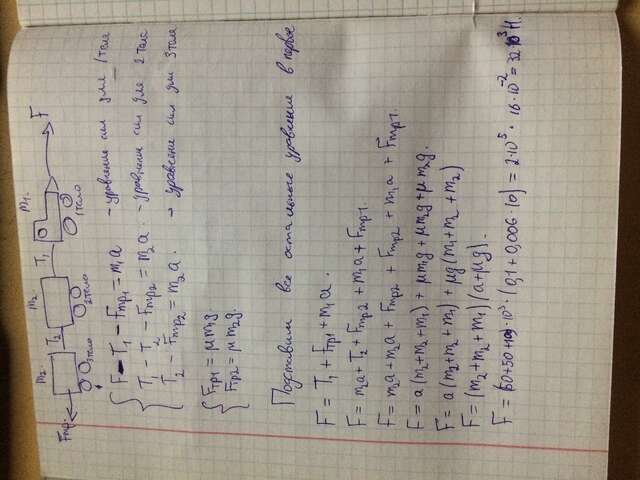 m₂ m₂ m₁
Fтр. T₂ T₁ F
3тело 2тело 1 тело
F - T₁ - Fтр₁ = m₁a - уравнение сил для 1 тела
T₁ - T₂ - Fтр₂ = m₂a. - уравнение сил для 2 тела
T₂ - Fтр₂ = m₂a. - уравнение сил для 3 тела
Fтр₁ = μm₁g
Fтр₂ = μm₂g.
Подставим все остальные уравнения в первое
F = T₁ + Fтр₁ + m₁a.
F = m₂a + T₂ + Fтр₂ + m₁a + Fтр₁.
F = m₂a + m₂a + Fтр₂ + Fтр₂ + m₁a + Fтр₁.
F = a(m₂+m₂+m₁) + μm₁g + μm₂g + μm₂g.
F = a(m₂+m₂+m₁) + μg(m₁+m₂+m₂)
F = (m₂+m₂+m₁)(a+μg).
F = (50+50+ )·10³·(0,1+0,006·10) = 2·10⁵ · 16·10⁻² = 32·10³ Н.